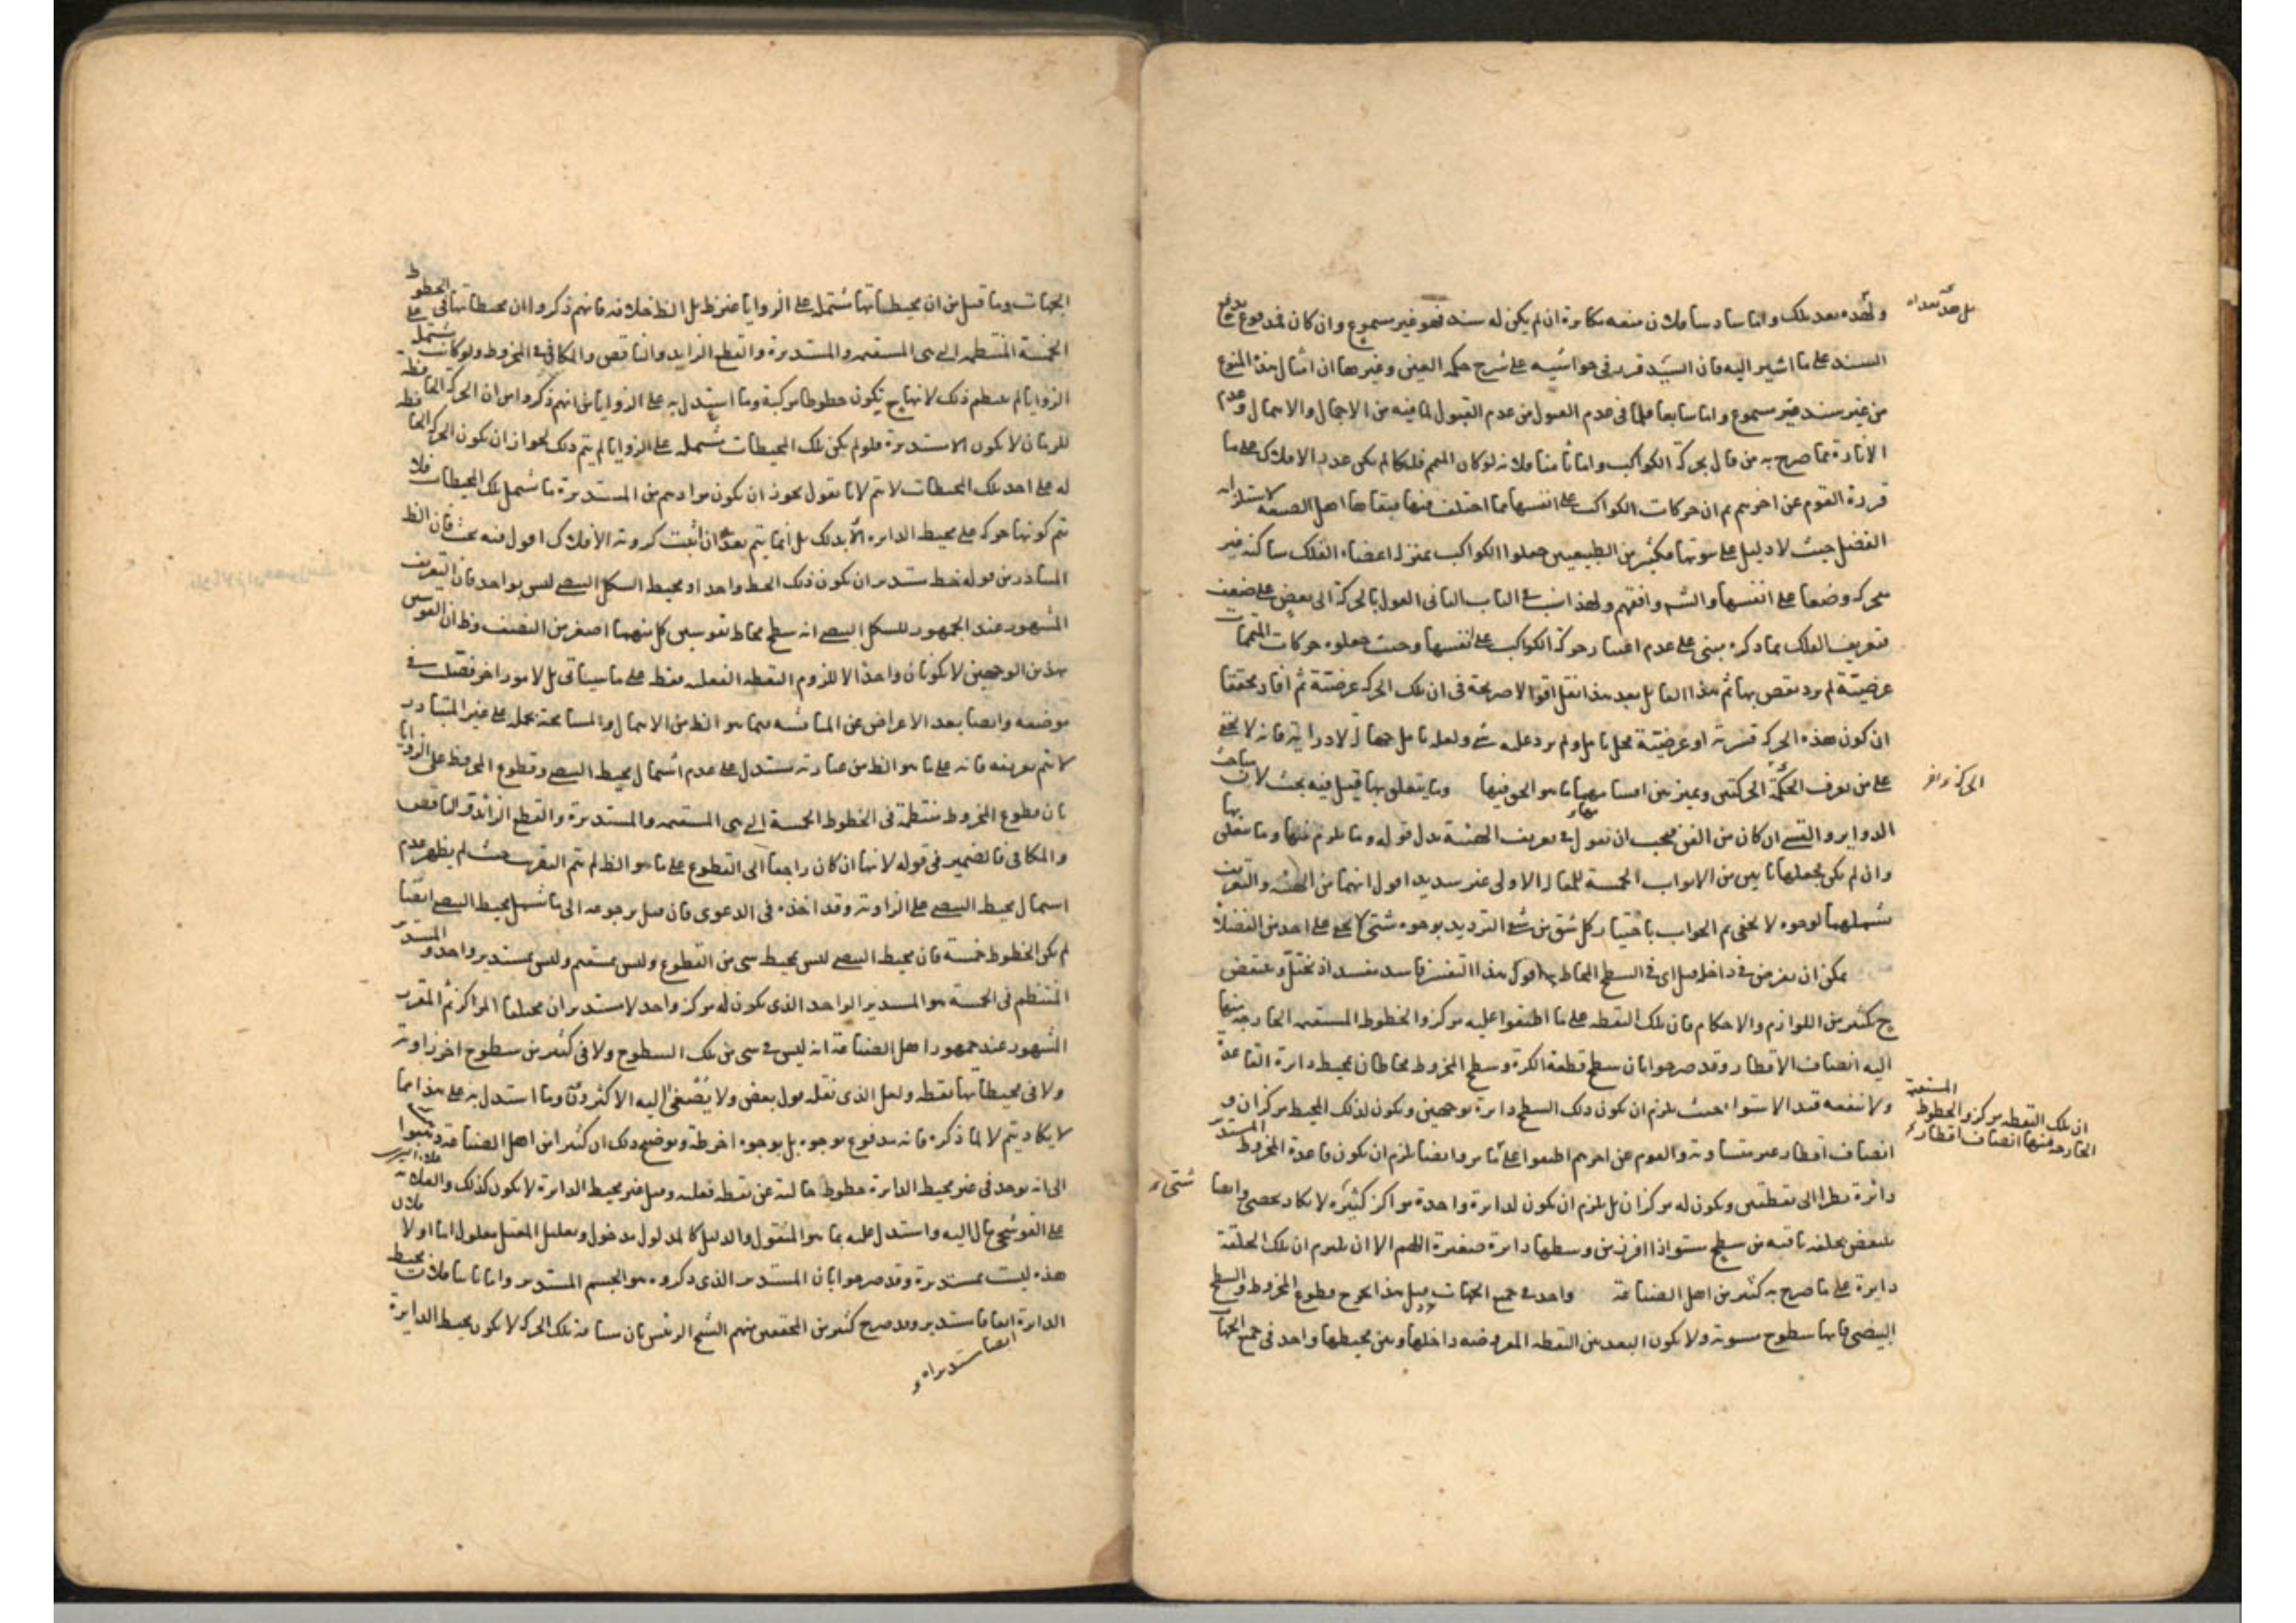 بل هذه بعداه
ولهذه بعد تلك واما سادسا فلان منعه مكابرة ان لم يكن له سند فهو غير مسموع وان كان فمدفوع
السند على ما اشير اليه فان السيد قرر في حواشيه على شرح حكمة العين وغيرها ان امثال هذه المنوع
من غير سند غير مسموع واما سابعا فلما في عدم القبول من عدم القبول لما فيه من الاجمال والاهمال وعدم
الافادة مما صرح به من قال بحركة الكواكب واما ثامنا فلانه لو كان المتمم فلكا لم يكن عدد الافلاك على ما
قرره القوم عن اخرهم ثم ان حركات الكواكب على انفسها مما اختلف فيها فنفاها اهل الصنعة لاستلزامه
الفضل حيث لا دليل على ثبوتها فكثير من الطبيعيين جعلوا الكواكب بمنزلة اعضاء الفلك ساكنة غير
متحركة وضعا على انفسها والشيخ وافقهم ولهذا نسب في الباب الثاني القول بالحركة الى بعض على ضعيف
تعريف الفلك بما ذكره مبنى على عدم اعتبار حركة الكواكب على انفسها وحيث جعلوه حركات المتممات
عرضية لم يرد نقض بها ثم هذا القائل بعد هذا نقل اقوالا صريحة في ان تلك الحركة عرضية ثم افاد تحقيقا
ان كون هذه الحركة قسرية او عرضية محل تامل ولم يرد عليه شي ولعله تامل جهالة لا دراية فانه لا يخفى
على من يعرف الحركتين ويميز بين اقسامهما ما هو الحق فيها وما يتعلق بها قيل فيه بحث لان مباحث
الدواير والقسى ان كان من الفن فيجب ان يقول في تعريف الهيئة بدل قوله وما يلزم منها وما يتعلق بها
وان لم يكن يجعلها بابين من الابواب الخمسة للمقالة الاولى غير سديد اقول انهما من الهيئة والتعريف
شملهما لوجوه لا يخفى ثم الجواب باختيار كل شق من شقى الترديد بوجوه شتى لا يخفى على احد من الفضلا
يمكن ان يفرض في داخله قيل اى في السطح المحاط به اقول هذا التفسير فاسد مفسد اذ يختل وينتقض
ح كثير من اللوازم والاحكام فان تلك النقطة على ما اطبقوا عليه مركز والخطوط المستقيمة الخارجة منها
اليه انصاف الاقطار وقد صرحوا بان سطح قطعة الكرة وسطح المخروط محاطان بمحيط دايرة القاعدة
ولا ينفعه قيد الاستوا حيث يلزم ان يكون ذلك السطح دايرة بوجهين ويكون لذلك المحيط مركزان و
انصاف اقطار غير متساوية والقوم عن اخرهم اطبقوا على وايضا يلزم ان يكون قاعدة المخروط المستدير
دائرة نظرا الى نقطتين ويكون له مركزان بل يلزم ان يكون لدايرة واحدة مراكز كثيرة لا يكاد يحصى وايضا
ينتقض بحلقة باقية من سطح مستو اذا افرز من وسطها دايرة صغيرة اللهم الا ان يلتزم ان تلك الحلقة
دايرة على ما صرح به كثير من اهل الصناعة واحد في جميع الجهات قيل هذا يخرج قطوع المخروط والسطح
البيضى فانها سطوح مستوية ولا يكون البعد بين النقطة المفروضة داخلها وبين محيطها واحد في جميع الجهات
الحركة وافر
ان تلك النقطه مركز والخطوط المستقيمة
الخارجه منها انصاف اقطاره
الجهات وما قيل من ان محيطاتها تشتمل على الزوايا غير ظ بل الظ خلافه فانهم ذكروا ان محيطاتها في الخطوط
الخمسة المنتظمة اى هى المستقيم والمستديرة والقطع الزايد والناقص والمكافى في المخروط ولو كانت تشتمل على
الزوايا لم ينتظم ذلك لانها ح تكون خطوطا مركبة وما استدل به على الزوايا من انهم ذكروا من ان الحركة الحافظة
للزمان لا يكون الا مستديرة فلو لم يكن تلك المحيطات مشتملة على الزوايا لم يتم ذلك لجواز ان يكون الحركة الحافظة
له على احد تلك المحيطات لا يتم لانا نقول يجوز ان يكون مرادهم من المستديرة ما شمل تلك المحيطات فلا
يتم كونها حركة على محيط الدايرة الا بذلك بل انما يتم بعد ان اثبت كروية الافلاك اقول فيه بحث فان الظ
المتبادر من قوله خط مستدير ان يكون ذلك الخط واحدا ومحيط الشكل البيضى ليس بواحد فان التعريف
المشهور عند الجمهور للشكل البيضى انه سطح محاط بقوسين كل منهما اصغر من النصف وظ ان القوسين
بهذين الوجهين لا يكونان واحدا لا للزوم النقطة الفعلية فقط على ما سياتى بل لامور اخر فصلت في
موضعه وايضا بعد الاعراض عن المناقشة فيما هو الظ من الاهمال والمسامحة يحمله على غير المتبادر
لا يتم تعريفه فانه على ما هو الظ من عبارته يستدل على عدم اشتمال محيط البيضى وقطوع المخروط على الزوايا
بان قطوع المخروط منتظمة في الخطوط الخمسة اى هى المستقيم والمستديرة والقطع الزائد والناقص
والمكافى فالضمير في قوله لانها ان كان راجعا الى القطوع على ما هو الظ لم يتم التقريب حيث لم يظهر عدم
اشتمال محيط البيضى على الزاوية وقد اخذه في الدعوى فان قيل برجوعه الى ما شمل محيط البيضى ايضا
لم يكن الخطوط خمسة فان محيط البيضى ليس محيط شى من القطوع وليس بمستقيم وليس بمستدير واحد والمستدير
المنتظم في الخمسة هو المستدير الواحد الذى يكون له مركز واحد لا مستديران مختلفا المراكز ثم المقرر
المشهور عند جمهور اهل الصناعة انه ليس في شى من تلك السطوح ولا في كثير من سطوح اخر زاوية
ولا في محيطاتها نقطة ولعل الذى نقله قول بعض ولا يصغى اليه الاكثرون وما استدل به على هذا مما
لا يكاد يتم لا لما ذكره فانه مدفوع بوجوه بل بوجوه اخر وتوضيح ذلك ان كثيرا من اهل الصناعة ذهبوا
الى انه يوجد في غير محيط الدايرة خطوط خالية عن نقطة فعلية وقيل غير محيط الدايرة لا يكون كذلك والعلامة
على القوشجى مال اليه واستدل عليه بما هو المنقول والدليل كالمدلول مدخول وتعليل المعتل معلول اما اولا فلان
هذه ليست بمستديرة وقد صرحوا بان المستدير الذى ذكروه هو الجسم المستدير واما ثانيا فلان محيط
الدايرة ايضا مستدير وقد صرح كثير من المحققين منهم الشيخ الرئيس بان مسافة تلك الحركة لا يكون محيط الدايرة
ايضا مستديراه و